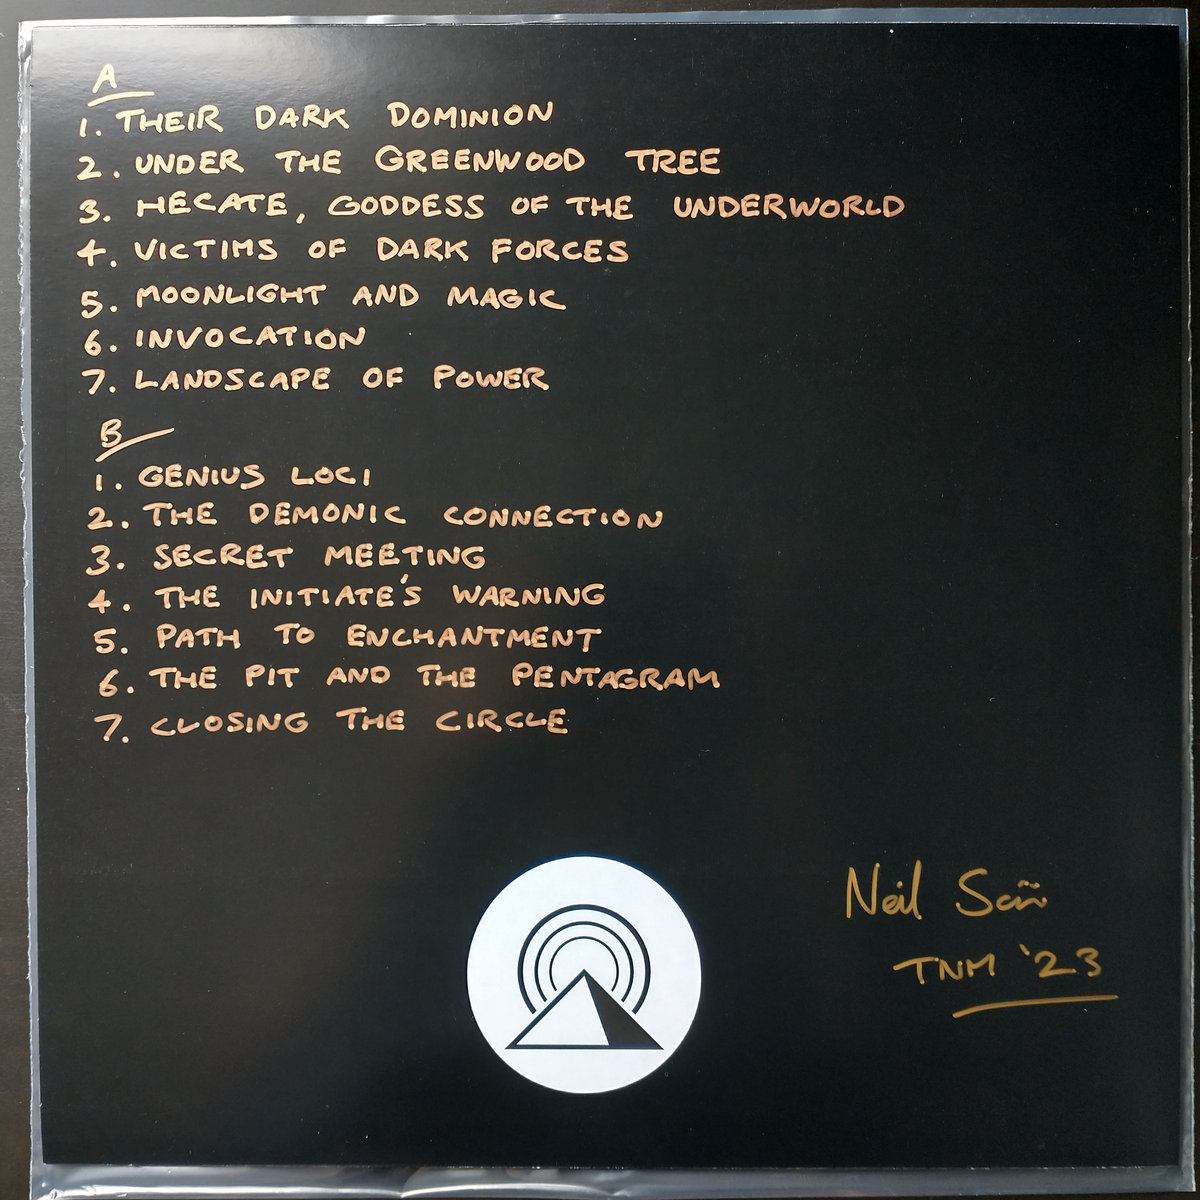 A
1. THEIR DARK DOMINION
2. UNDER THE GREENWOOD TREE
3. HECATE, GODDESS OF THE UNDERWORLD
4. VICTIMS OF DARK FORCES
5. MOONLIGHT AND MAGIC
6. INVOCATION
7. LANDSCAPE OF POWER
B
1. GENIUS LOCI
2. THE DEMONIC CONNECTION
3. SECRET MEETING
4. THE INITIATE'S WARNING
5. PATH TO ENCHANTMENT
6. THE PIT AND THE PENTAGRAM
7. CLOSING THE CIRCLE
Neil
TNM '23